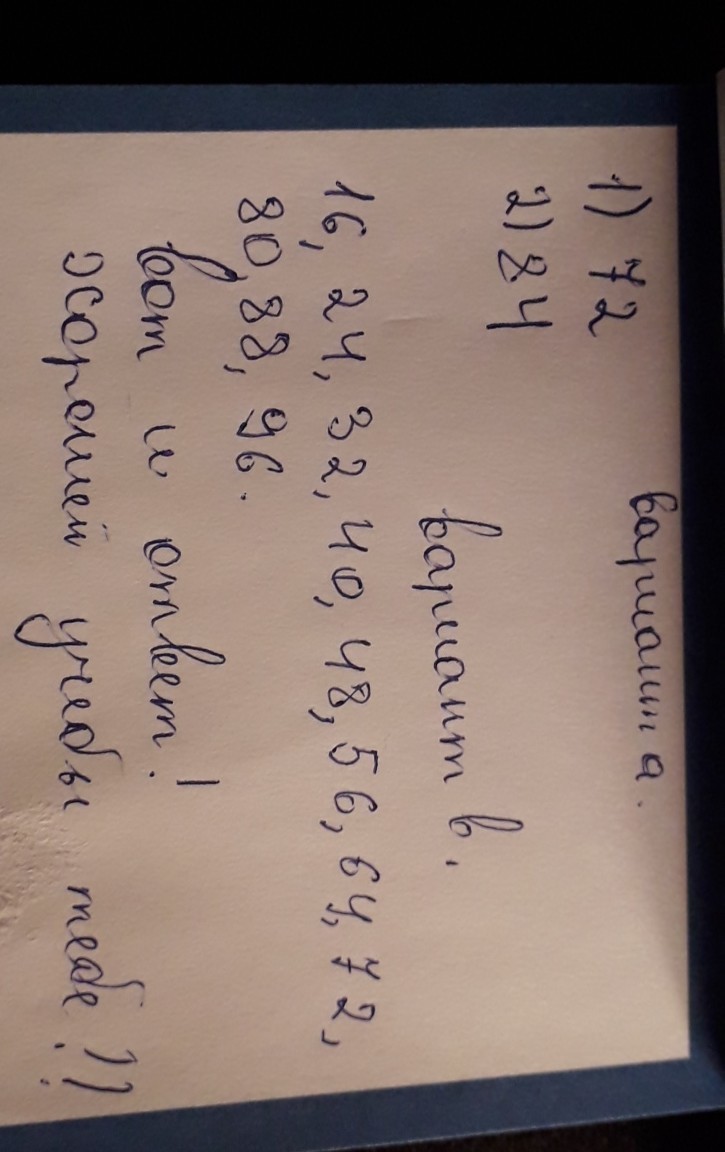 вариант а.
1) 72
2) 84
вариант в.
16, 24, 32, 40, 48, 56, 64, 72,
80, 88, 96.
вот и ответ!
хорошей учебы тебе!!